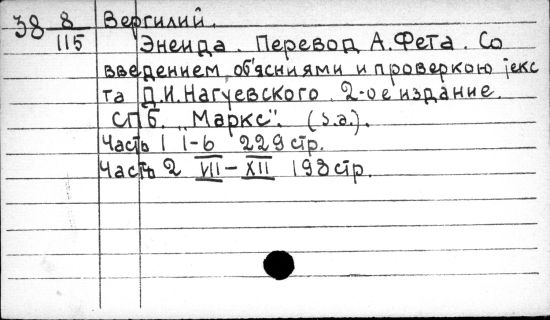 38 8/115 Вергилий.
Энеида. Перевод А.Фета. Со
введением, об'ясниями и проверкою текс
та Д.И.Нагуевского. 2-ое издание.
СПб. „Маркс". (s.a.).
Часть 1 1-6 229 стр.
Часть 2 VII-XII 198 стр.